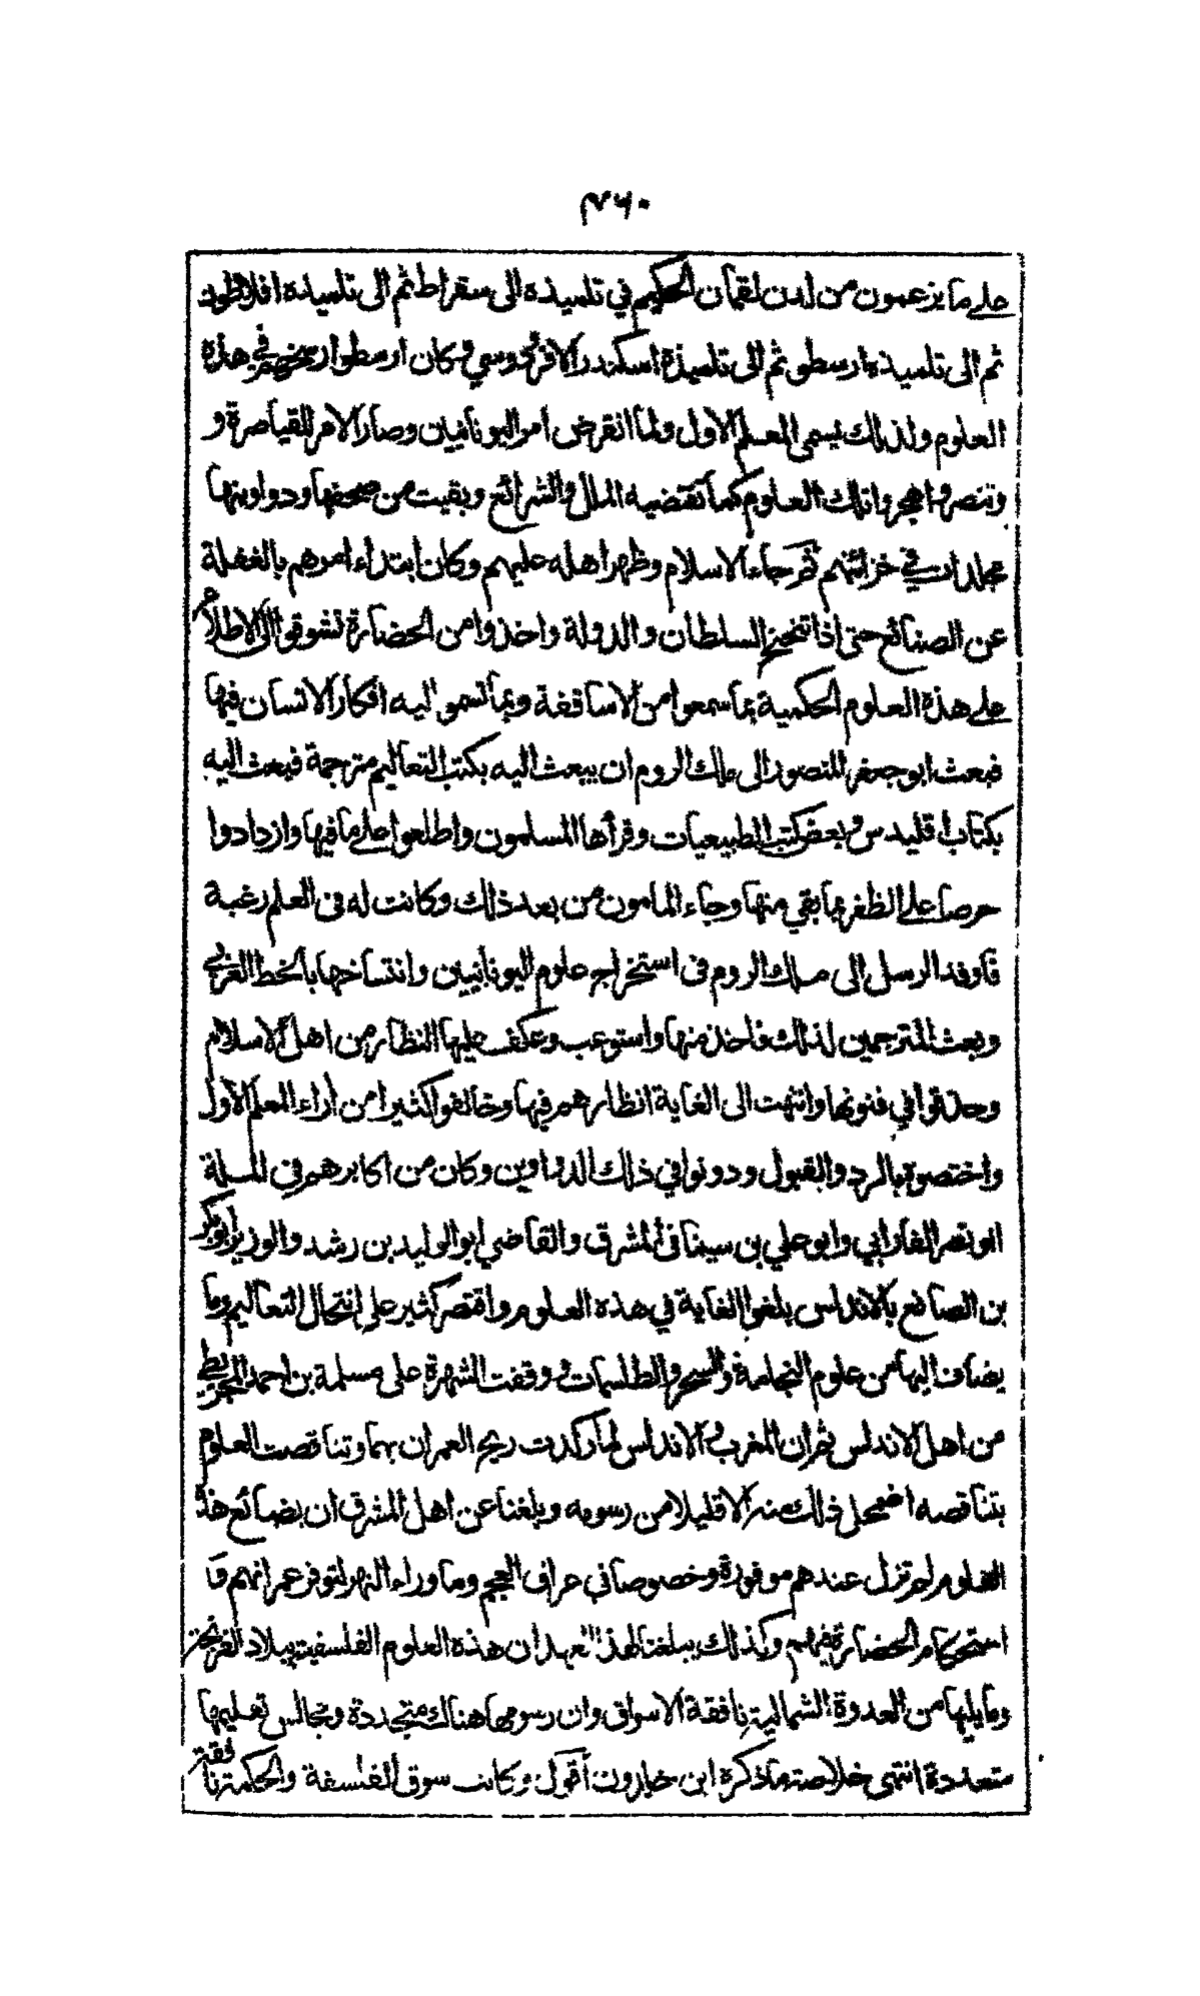 ٣٦٠
على ما يزعمون من لدن لقمان الحكيم في تلميذه الى سقراط ثم الى تلميذه افلاطون
ثم الى تلميذه ارسطو ثم الى تلميذه اسكندر الافرودوسي وكان ارسطو ارسخهم في هذه
العلوم ولذلك يسمى المعلم الاول ولما انقرض امر اليونانيين وصار الامر للقياصرة و
تنصروا هجروا تلك العلوم كما تقتضيه الملل والشرائع وبقيت من صحفها ودواوينها
مجلدات في خزائنهم ثم جاء الاسلام وظهر اهله عليهم وكان ابتداء امرهم بالغفلة
عن الصنائع حتى اذا تنحنح السلطان والدولة واخذوا من الحضارة تشوقوا الى الاطلاع
على هذه العلوم الحكمية بما سمعوا من الاساقفة وبما تسمو اليه افكار الانسان فيها
فبعث ابو جعفر المنصور الى ملك الروم ان يبعث اليه بكتب التعاليم مترجمة فبعث اليه
بكتاب اقليدس وبعض كتب الطبيعيات وقرأها المسلمون واطلعوا على ما فيها وازدادوا
حرصا على الظفر بما بقي منها وجاء المامون من بعد ذلك وكانت له فى العلم رغبة
فاوفد الرسل الى ملك الروم فى استخراج علوم اليونانيين وانتساخها بالخط العربي
وبعث المترجمين لذلك فاخذ منها واستوعب وعكف عليها النظار من اهل الاسلام
وحذقوا في فنونها وانتهت الى الغاية انظارهم فيها وخالفوا كثيرا من اراء المعلم الاول
واختصوه بالرد والقبول ودونوا في ذلك الدواوين وكان من اكابرهم في الملة
ابو نصر الفارابي وابو علي بن سينا فى المشرق والقاضي ابو الوليد بن رشد والوزير ابو بكر
بن الصائع بالاندلس بلغوا الغاية في هذه العلوم واقتصر كثير على انتحال التعاليم وما
يضاف اليها من علوم النجامة والسحر والطلسمات ووقفت الشهرة على مسلمة بن احمد المجريطي
من اهل الاندلس ثم ان المغرب والاندلس لما ركدت ريح العمران بهما وتناقصت العلوم
بتناقصه اضمحل ذلك منه الا قليلا من رسومه ويبلغنا عن اهل المشرق ان بضائع هذه
العلوم لم تزل عندهم موفورة وخصوصا في عراق العجم وما وراء النهر لتوفر عمرانهم و
استحكام الحضارة فيهم وكذلك يبلغنا لهذا العهد ان هذه العلوم الفلسفية ببلاد الفرنجة
وما يليها من العدوة الشمالية نافقة الاسواق وان رسومها هناك متجددة ومجالس تعليمها
متعددة انتهى خلاصة ما ذكره ابن خلدون أقول وكانت سوق الفلسفة والحكمة نافقة